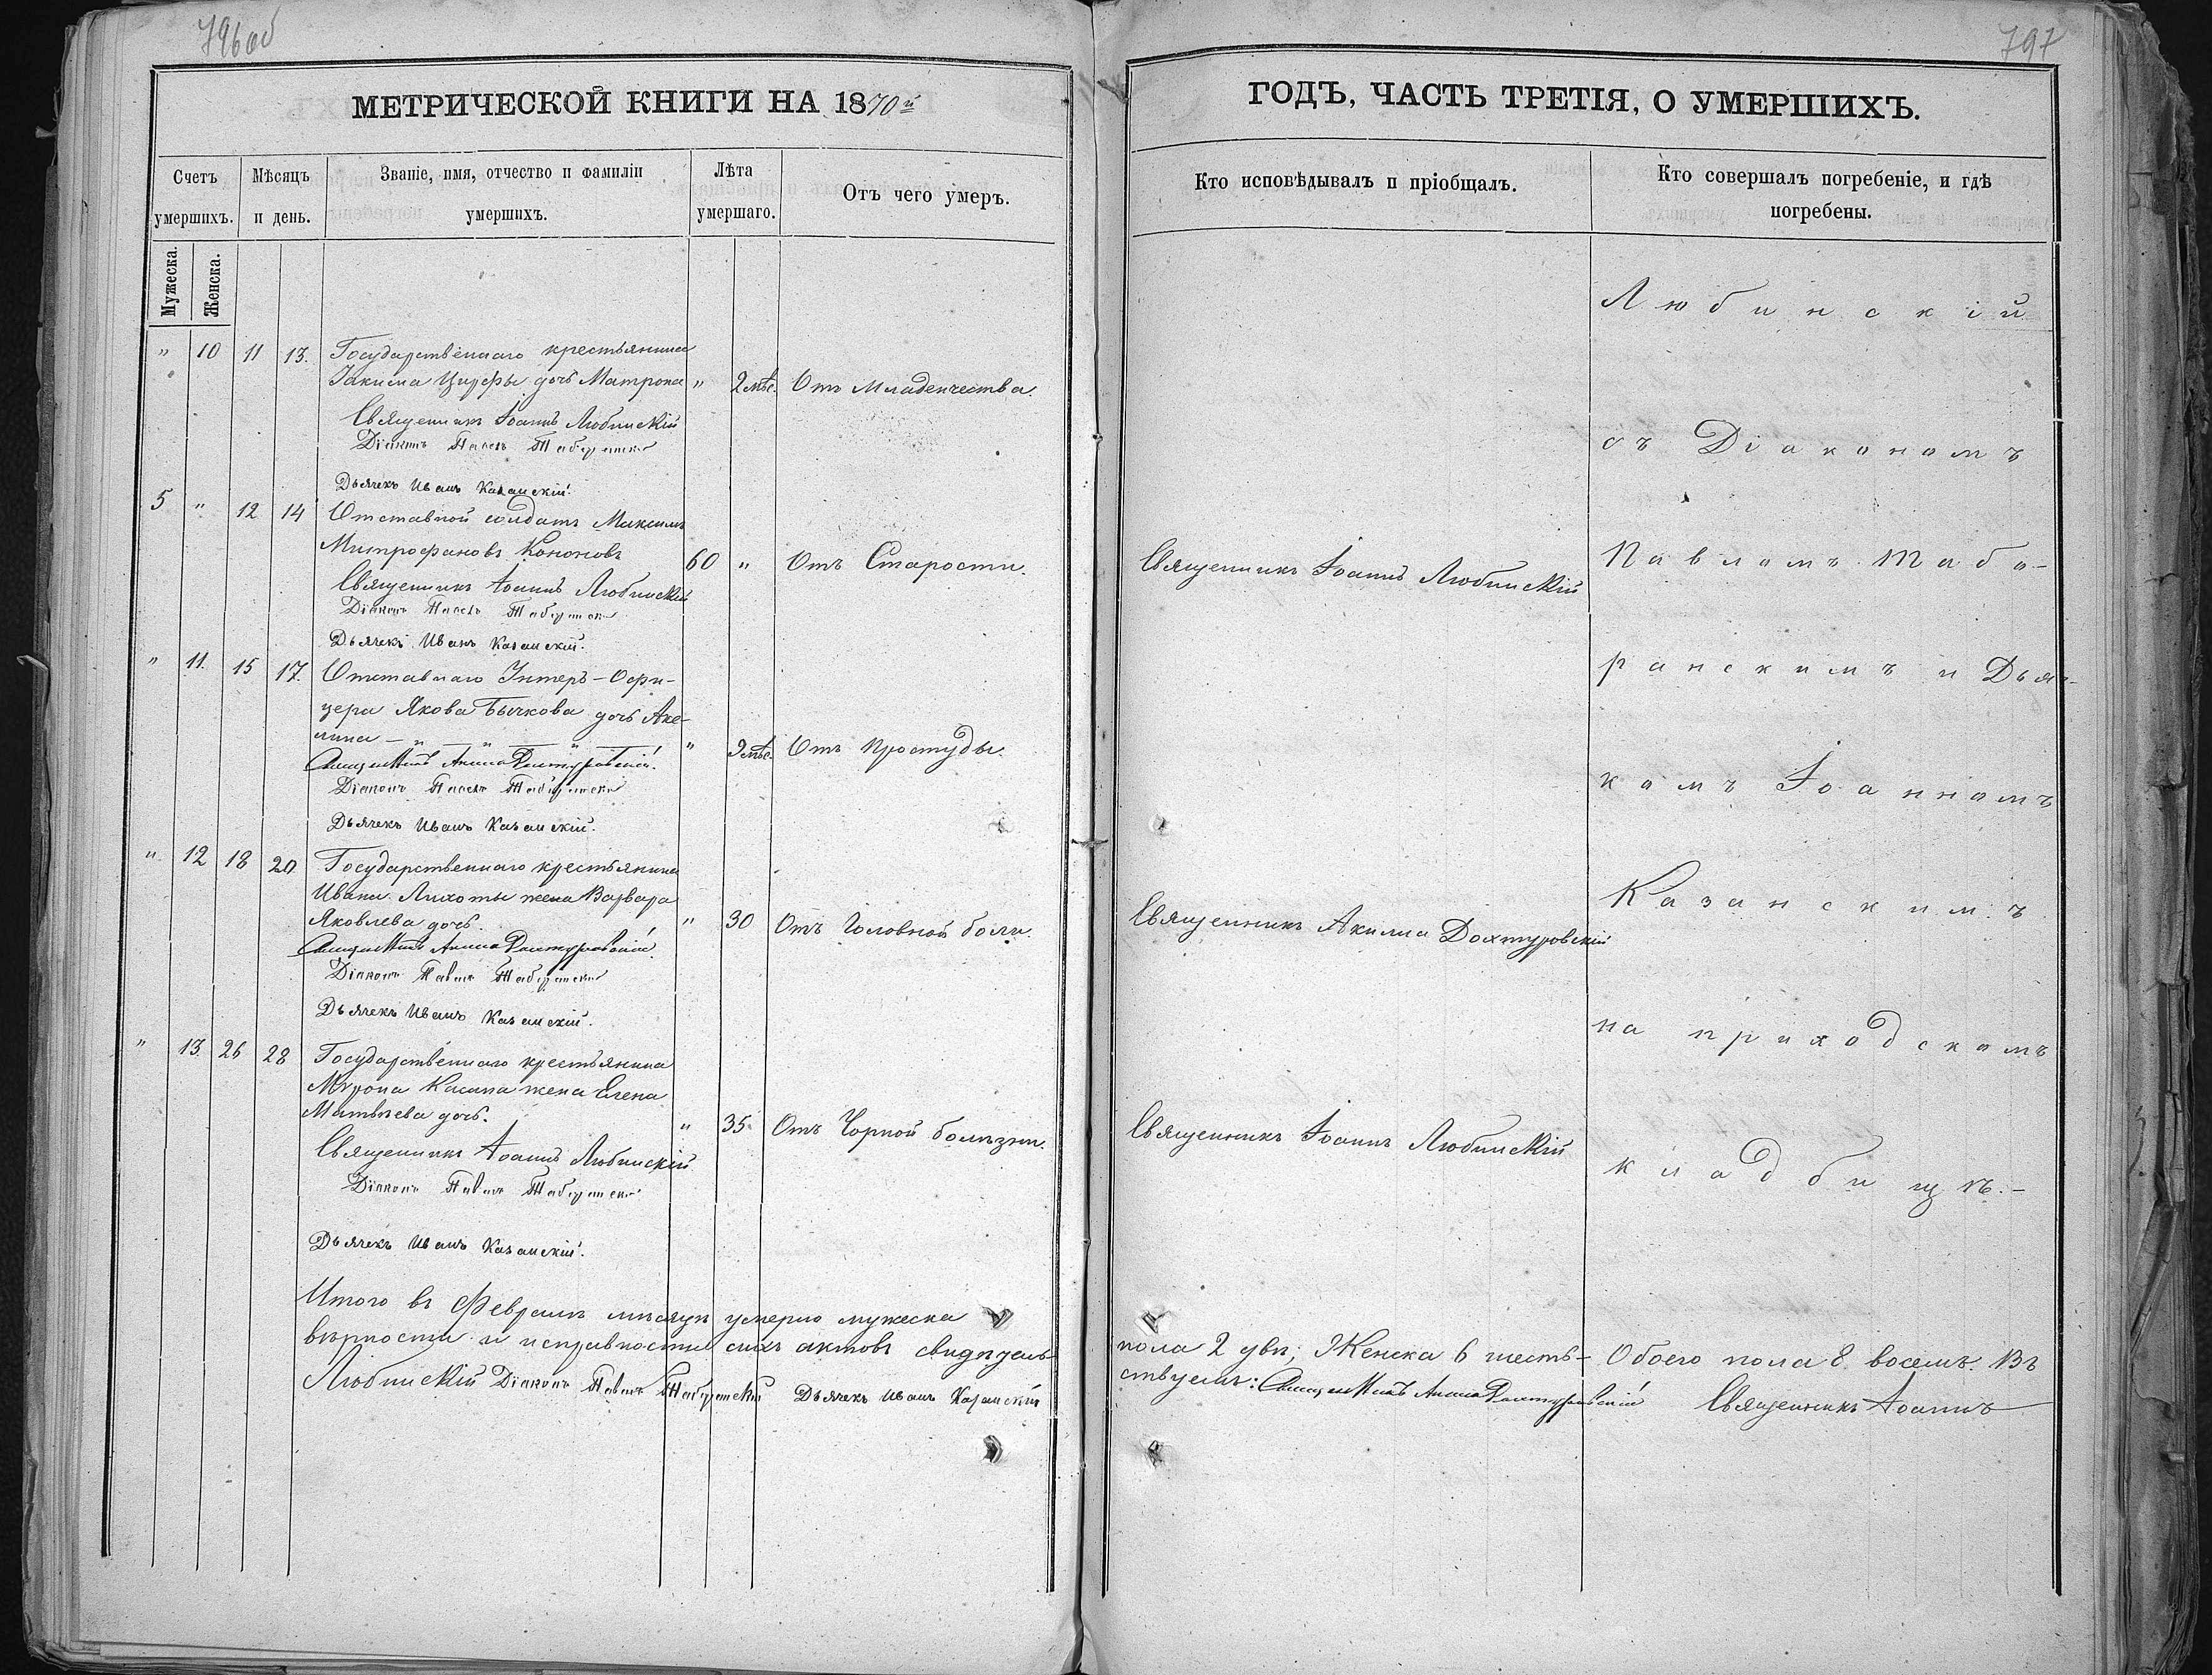 796об
МЕТРИЧЕСКОЙ КНИГИ НА 1870й
Счетъ умершихъ.
Мужеска.
Женска.
Мѣсяцъ и день.
Званіе, имя, отчество и фамиліи умершихъ.
Лѣта умершаго.
Отъ чего умер.
" 10 11 13. Государственнаго крестьянина
Іакима Цицюры дочь Матрона " 2 мѣс. Отъ Младенчества.
Священникъ Іоаннъ Любинскій
Діаконъ Павелъ Таборанскій
Дьячекъ Иванъ Казанскій.
5 " 12 14 Отставной солдатъ Максимъ
Митрофановъ Кононовъ 60 " Отъ Старости.
Священникъ Іоаннъ Любинскій
Діаконъ Павелъ Таборанскій
Дьячекъ Иванъ Казанскій.
" 11. 15 17. Отставнаго Унтеръ-Офи-
цера Якова Бычкова дочь Аке-
лина — " — " — " — " 9 мѣс. Отъ простуды.
Священникъ Акила Дохтуровскій.
Діаконъ Павелъ Таборанскій
Дьячекъ Иванъ Казанскій.
" 12 18 20 Государственнаго крестьянина
Ивана Лихоты жена Варвара
Яковлева дочь. " 30 Отъ Головной боли.
Священникъ Акила Дохтуровскій.
Діаконъ Павелъ Таборанскій
Дьячекъ Иванъ Казанскій.
" 13 26 28 Государственнаго крестьянина
Мѵрона Касапа жена Елена
Матвѣева дочь. " 35 Отъ Чорной болѣзни.
Священникъ Іоаннъ Любинскій
Діаконъ Павелъ Таборанскій
Дьячекъ Иванъ Казанскій.
Итого въ Февралѣ мѣсяцѣ умерло мужеска
вѣрности и исправности сихъ актовъ свидѣтель-
Любинскій Діаконъ Павелъ Таборанскій Дьячекъ Иванъ Казанскій
797
ГОДЪ, ЧАСТЬ ТРЕТІЯ, О УМЕРШИХЪ.
Кто исповѣдывалъ и пріобщалъ.
Кто совершалъ погребеніе, и гдѣ погребены.
Любинскій
съ Діакономъ
Священникъ Іоаннъ Любинскій
Павломъ Табо-
ранскимъ и Дьяч-
комъ Іоанномъ
Священникъ Акила Дохтуровскій
Казанскимъ
на приходскомъ
Священникъ Іоаннъ Любинскій
кладбищѣ.-
пола 2 два; Женска 6 шесть- Обоего пола 8. восемь. Въ
ствуемъ: Священникъ Акила Дохтуровскій Священникъ Іоаннъ